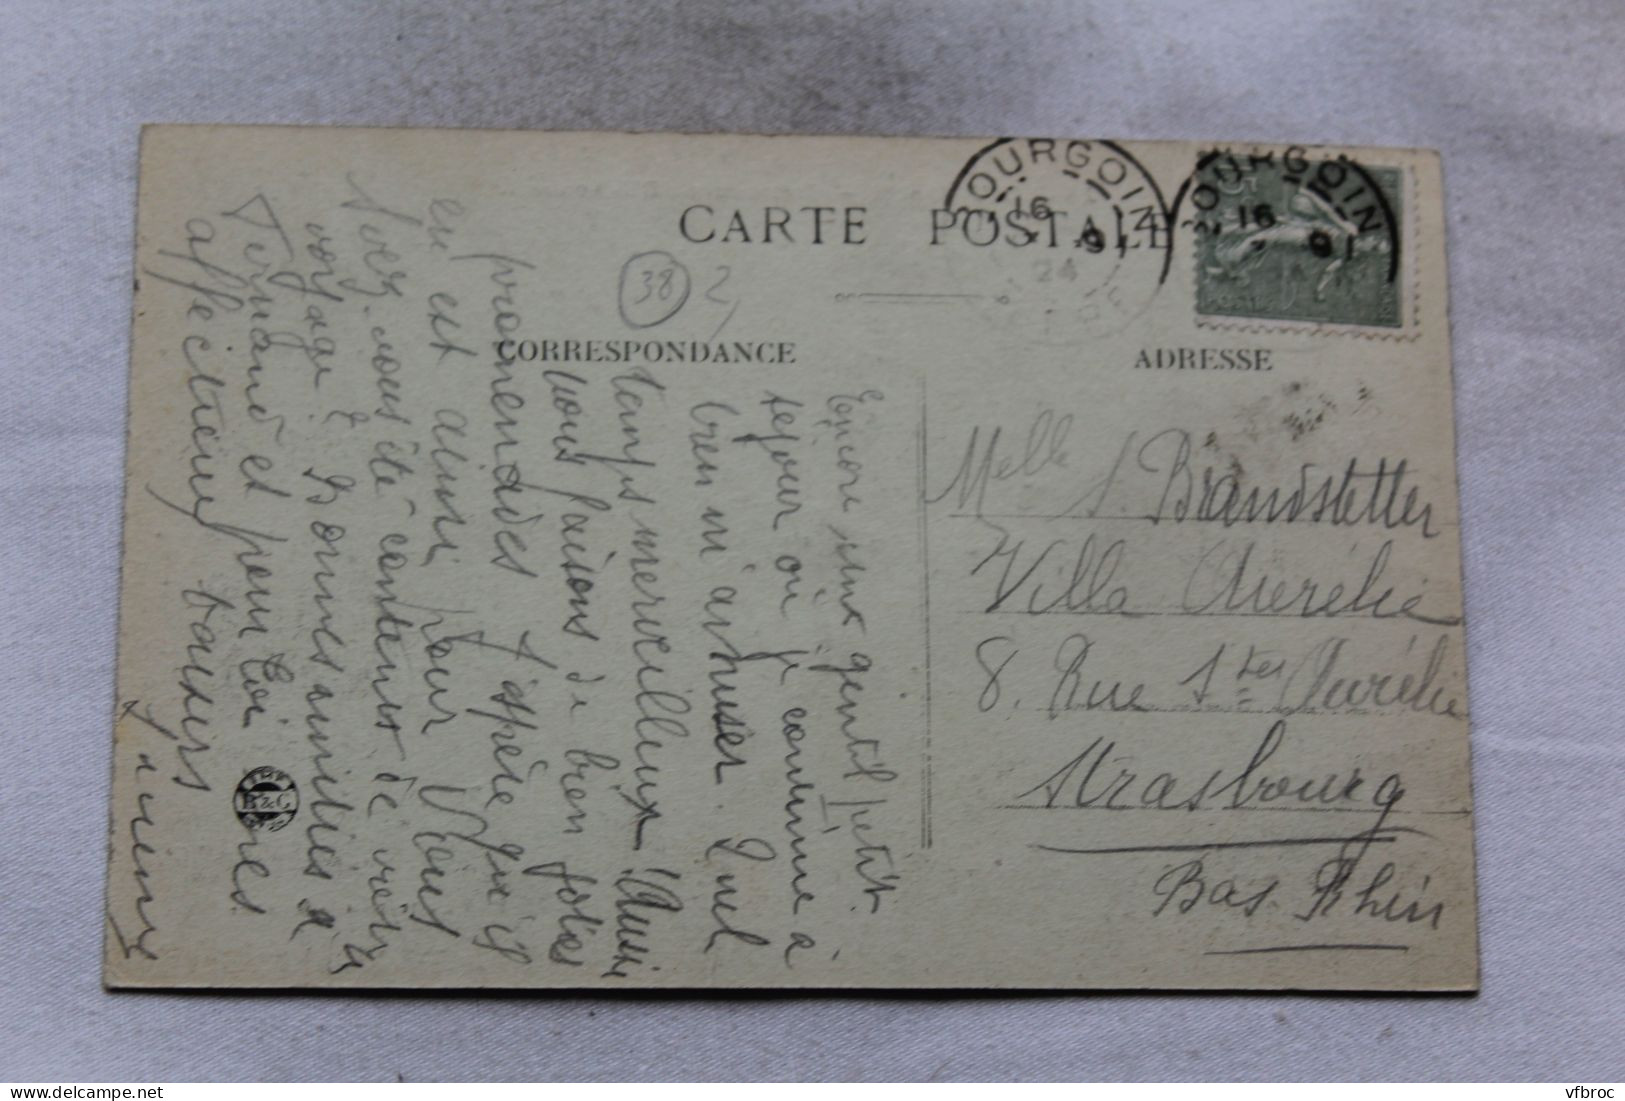 CARTE POSTALE
BOURGOIN
16
9
24
BOURGOIN
16
9
38
2
CORRESPONDANCE
ADRESSE
Encore un gentil petit
séjour où je continue à
bien m'amuser. Quel
temps merveilleux. Aussi
nous faisons de bien jolies
promenades. J'espère qu'il
en est ainsi pour vous
avez-vous été contents de votre
voyage? Bonnes amitiés à
Fernand et pour toi mes
affectueux baisers
Melle S. Brandstetter
Villa Aurélie
8. Rue Stes Aurélie
Strasbourg
Bas Rhin
B & G
vfbroc